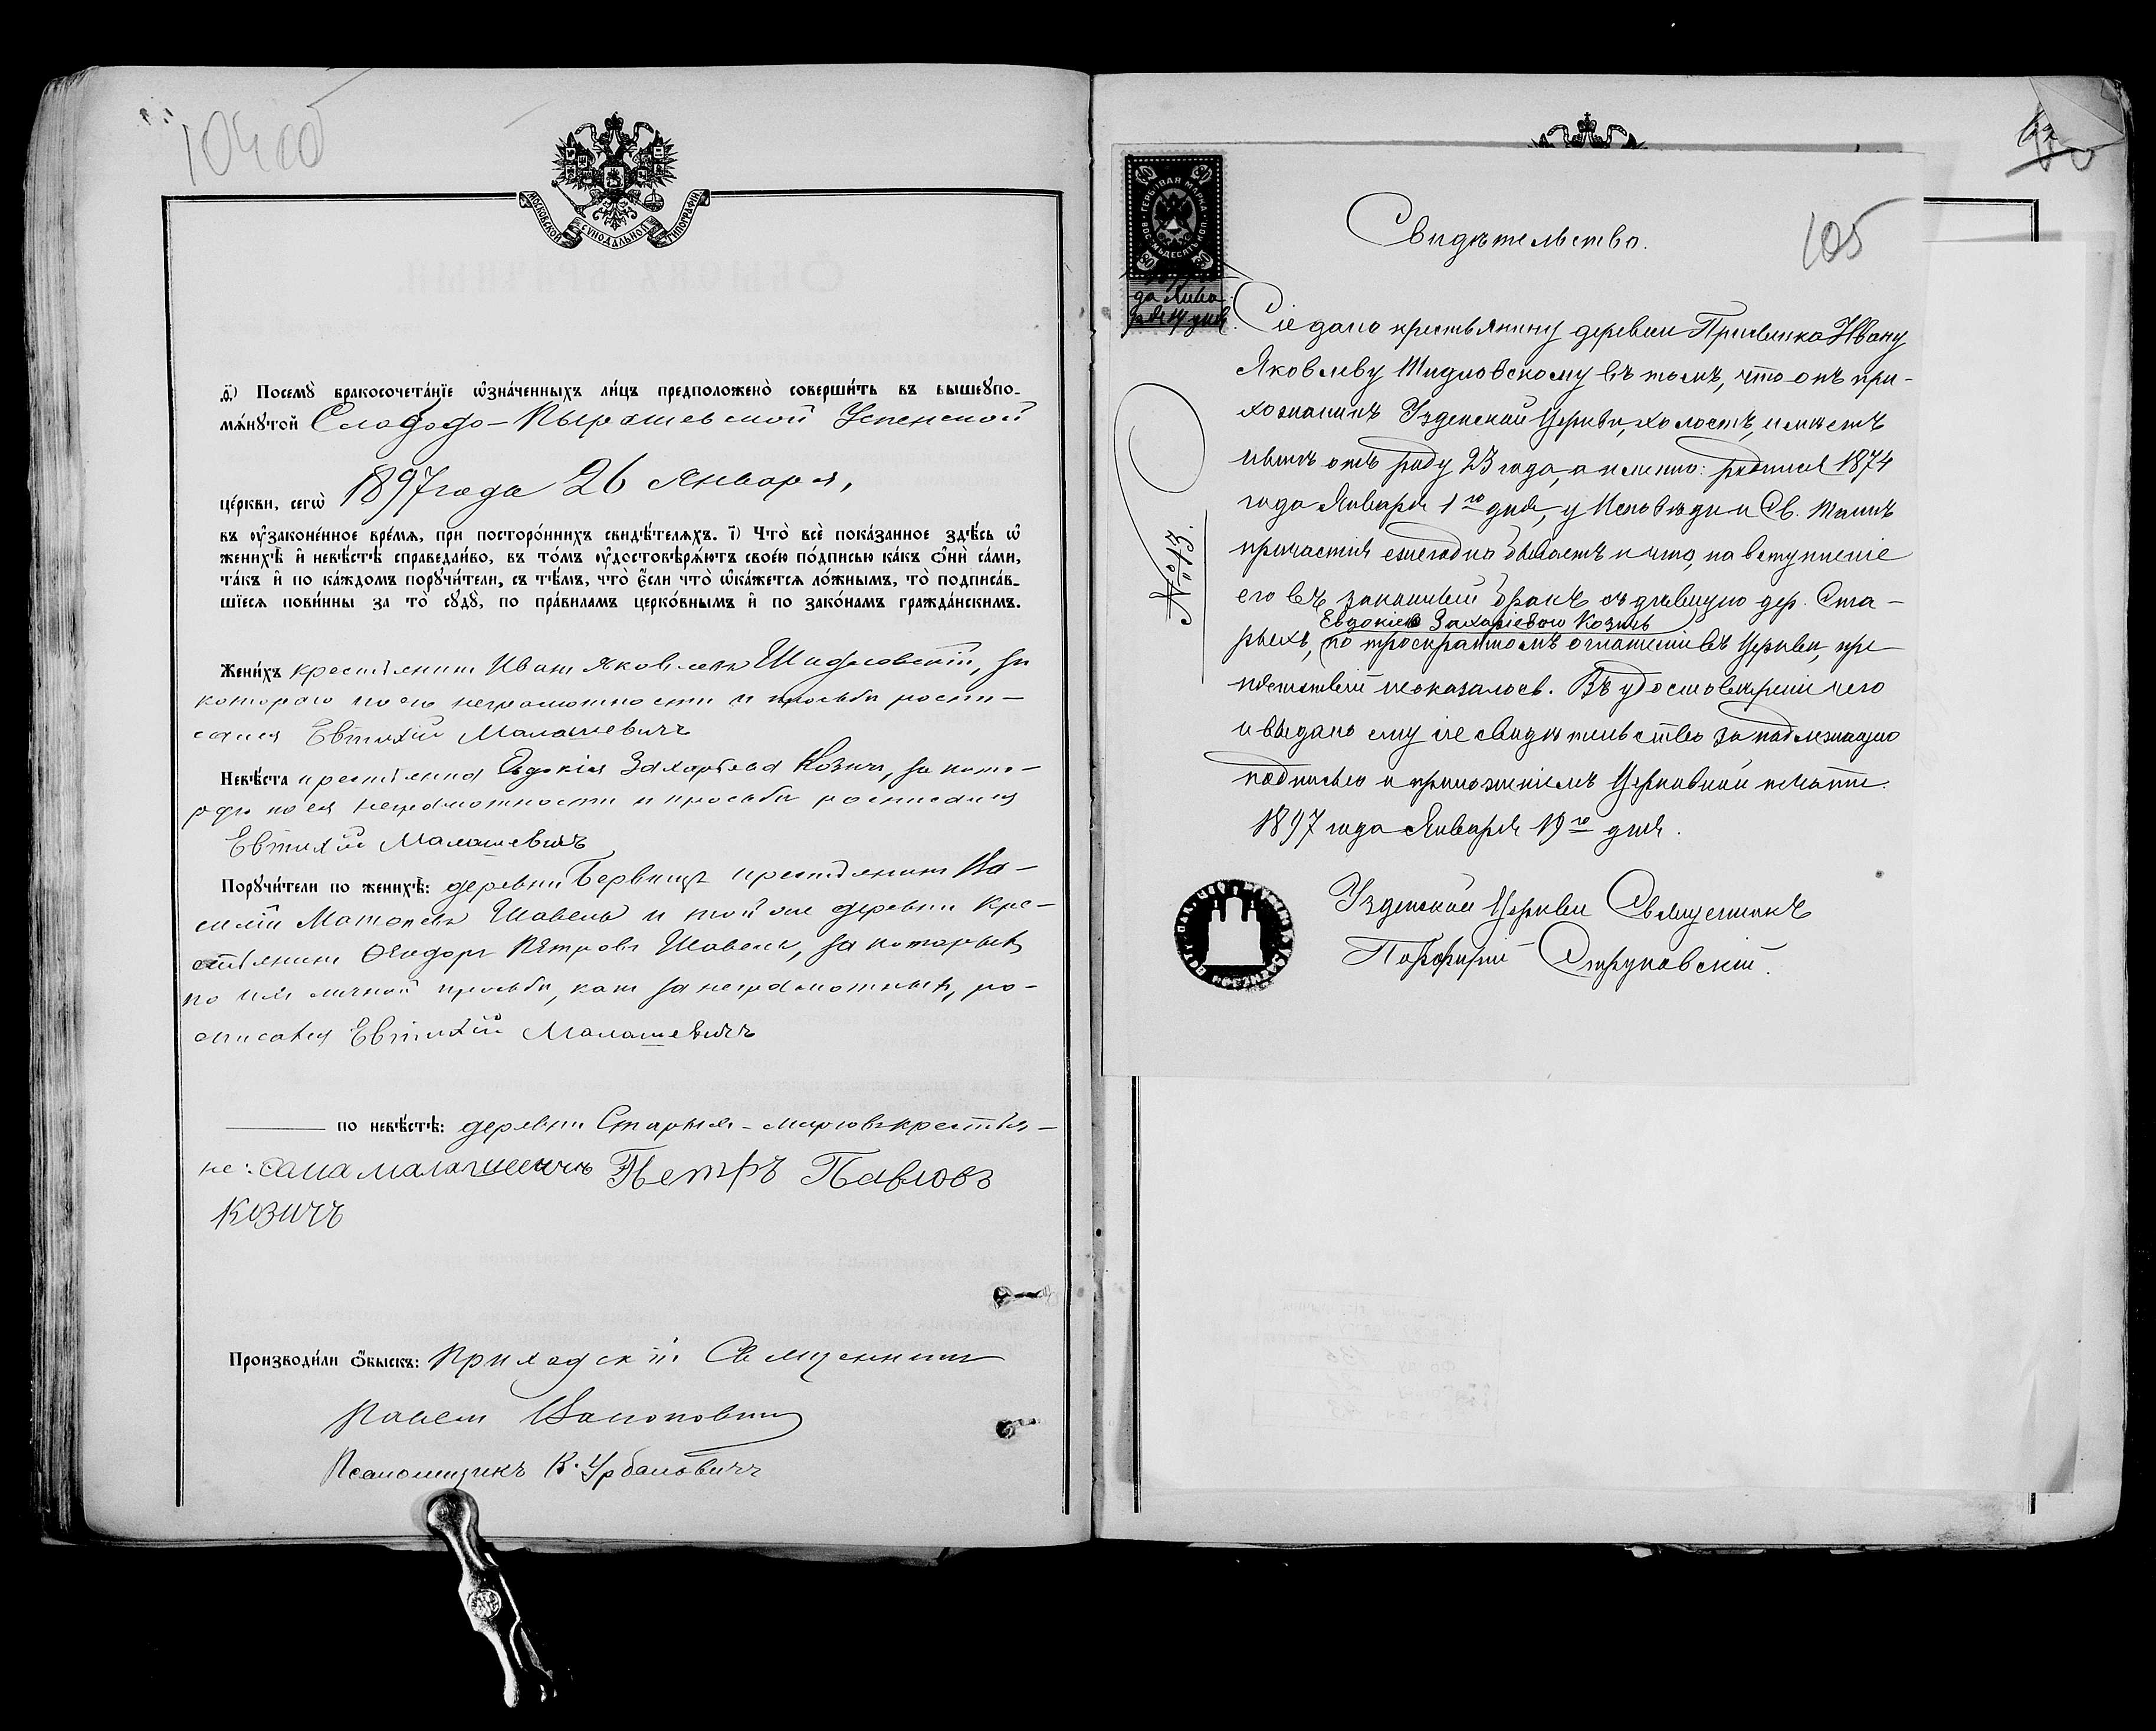 104 об
МОСКОВСКОЙ СѴНОДАЛЬНОЙ ТИПОГРАФІИ
д҃) Посемꙋ̀ бракосочета́нїе ѡ҆зна́ченныхъ ли́цъ предположено̀ соверши́ть въ вышеꙋпо-
мѧ́нꙋтой Слободо-Пырашевской Успенской
це́ркви, сегѡ̀ 1897 года 26 Января,
въ ᲂу҆зако́ненное вре́мѧ, при посторо́ннихъ свидѣ́телѧхъ. і҃) Что̀ всѐ пока́занное здѣ́сь ѡ҆
женихѣ̀ и҆ невѣ́стѣ справедли́во, въ то́мъ ᲂу҆достовѣрѧ́ютъ свое́ю по́дписью ка́къ ѻ҆нѝ са́ми,
та́къ и҆ по ка́ждомъ порꙋчи́тели, съ тѣ́мъ, что̀ є҆́сли что̀ ѡ҆ка́жетсѧ ло́жнымъ, то̀ подписа́в-
шїесѧ пови́нны за то̀ сꙋдꙋ̀, по пра́виламъ церко́внымъ и҆ по зако́намъ гражда́нскимъ.
Жени́хъ крестьянинъ Иванъ Яковлевъ Шидловскій, за
котораго по его неграмотности и просьбѣ роспи-
сался Евтихій Малашевичъ
Невѣ́ста крестьянка Евдокія Захаріева Козичъ, за кото-
рую по ея неграмотности и просьбѣ росписался
Евтихій Малашевичъ
Порꙋчи́тели по женихѣ̀: деревни Бервищъ крестьянинъ Ва-
силій Матѳеевъ Шавель и той же деревни кре-
стьянинъ Ѳеодоръ Петровъ Шавель, за которыхъ
по ихъ личной просьбѣ, какъ за неграмотныхъ, ро-
списался Евтихій Малашевичъ
по невѣ́стѣ: деревни Старыхъ- крестья-
не: Малашевичъ Петръ Павловъ
Козичъ
Производи́ли ѻ҆́быскъ: Приходскій Священникъ
Павелъ
Псаломщикъ К. Урбановичъ
ГЕРБОВАЯ МАРКА
ВОСЕМЬДЕСЯТЪ КОП.
80
да Янва-
ря 19 дня.
105
№ 13.
Свидѣтельство.
Сіе дано крестьянину деревни Ивану
Яковлеву Шидловскому въ томъ, что онъ при-
хожанинъ Узденской Церкви, холостъ, имѣетъ
нынѣ отъ роду 23 года, а именно: родился 1874
года Января 1го дня, у Исповѣди и Св. Таинъ
причастія ежегодно бываетъ и что, на вступленіе
его въ законный бракъ съ дѣвицею дер. Ста-
Евдокіею Захаріевою Козичъ
рыхъ, по троекратномъ оглашеніи въ Церкви, пре-
пятствій не оказалось. Въ удостовѣреніи чего
и выдано ему сіе свидѣтельство за надлежащею
подписью и приложеніемъ Церковной печати.
1897 года Января 19го дня.
Узденской Церкви Священникъ
Порфирій Струковскій.